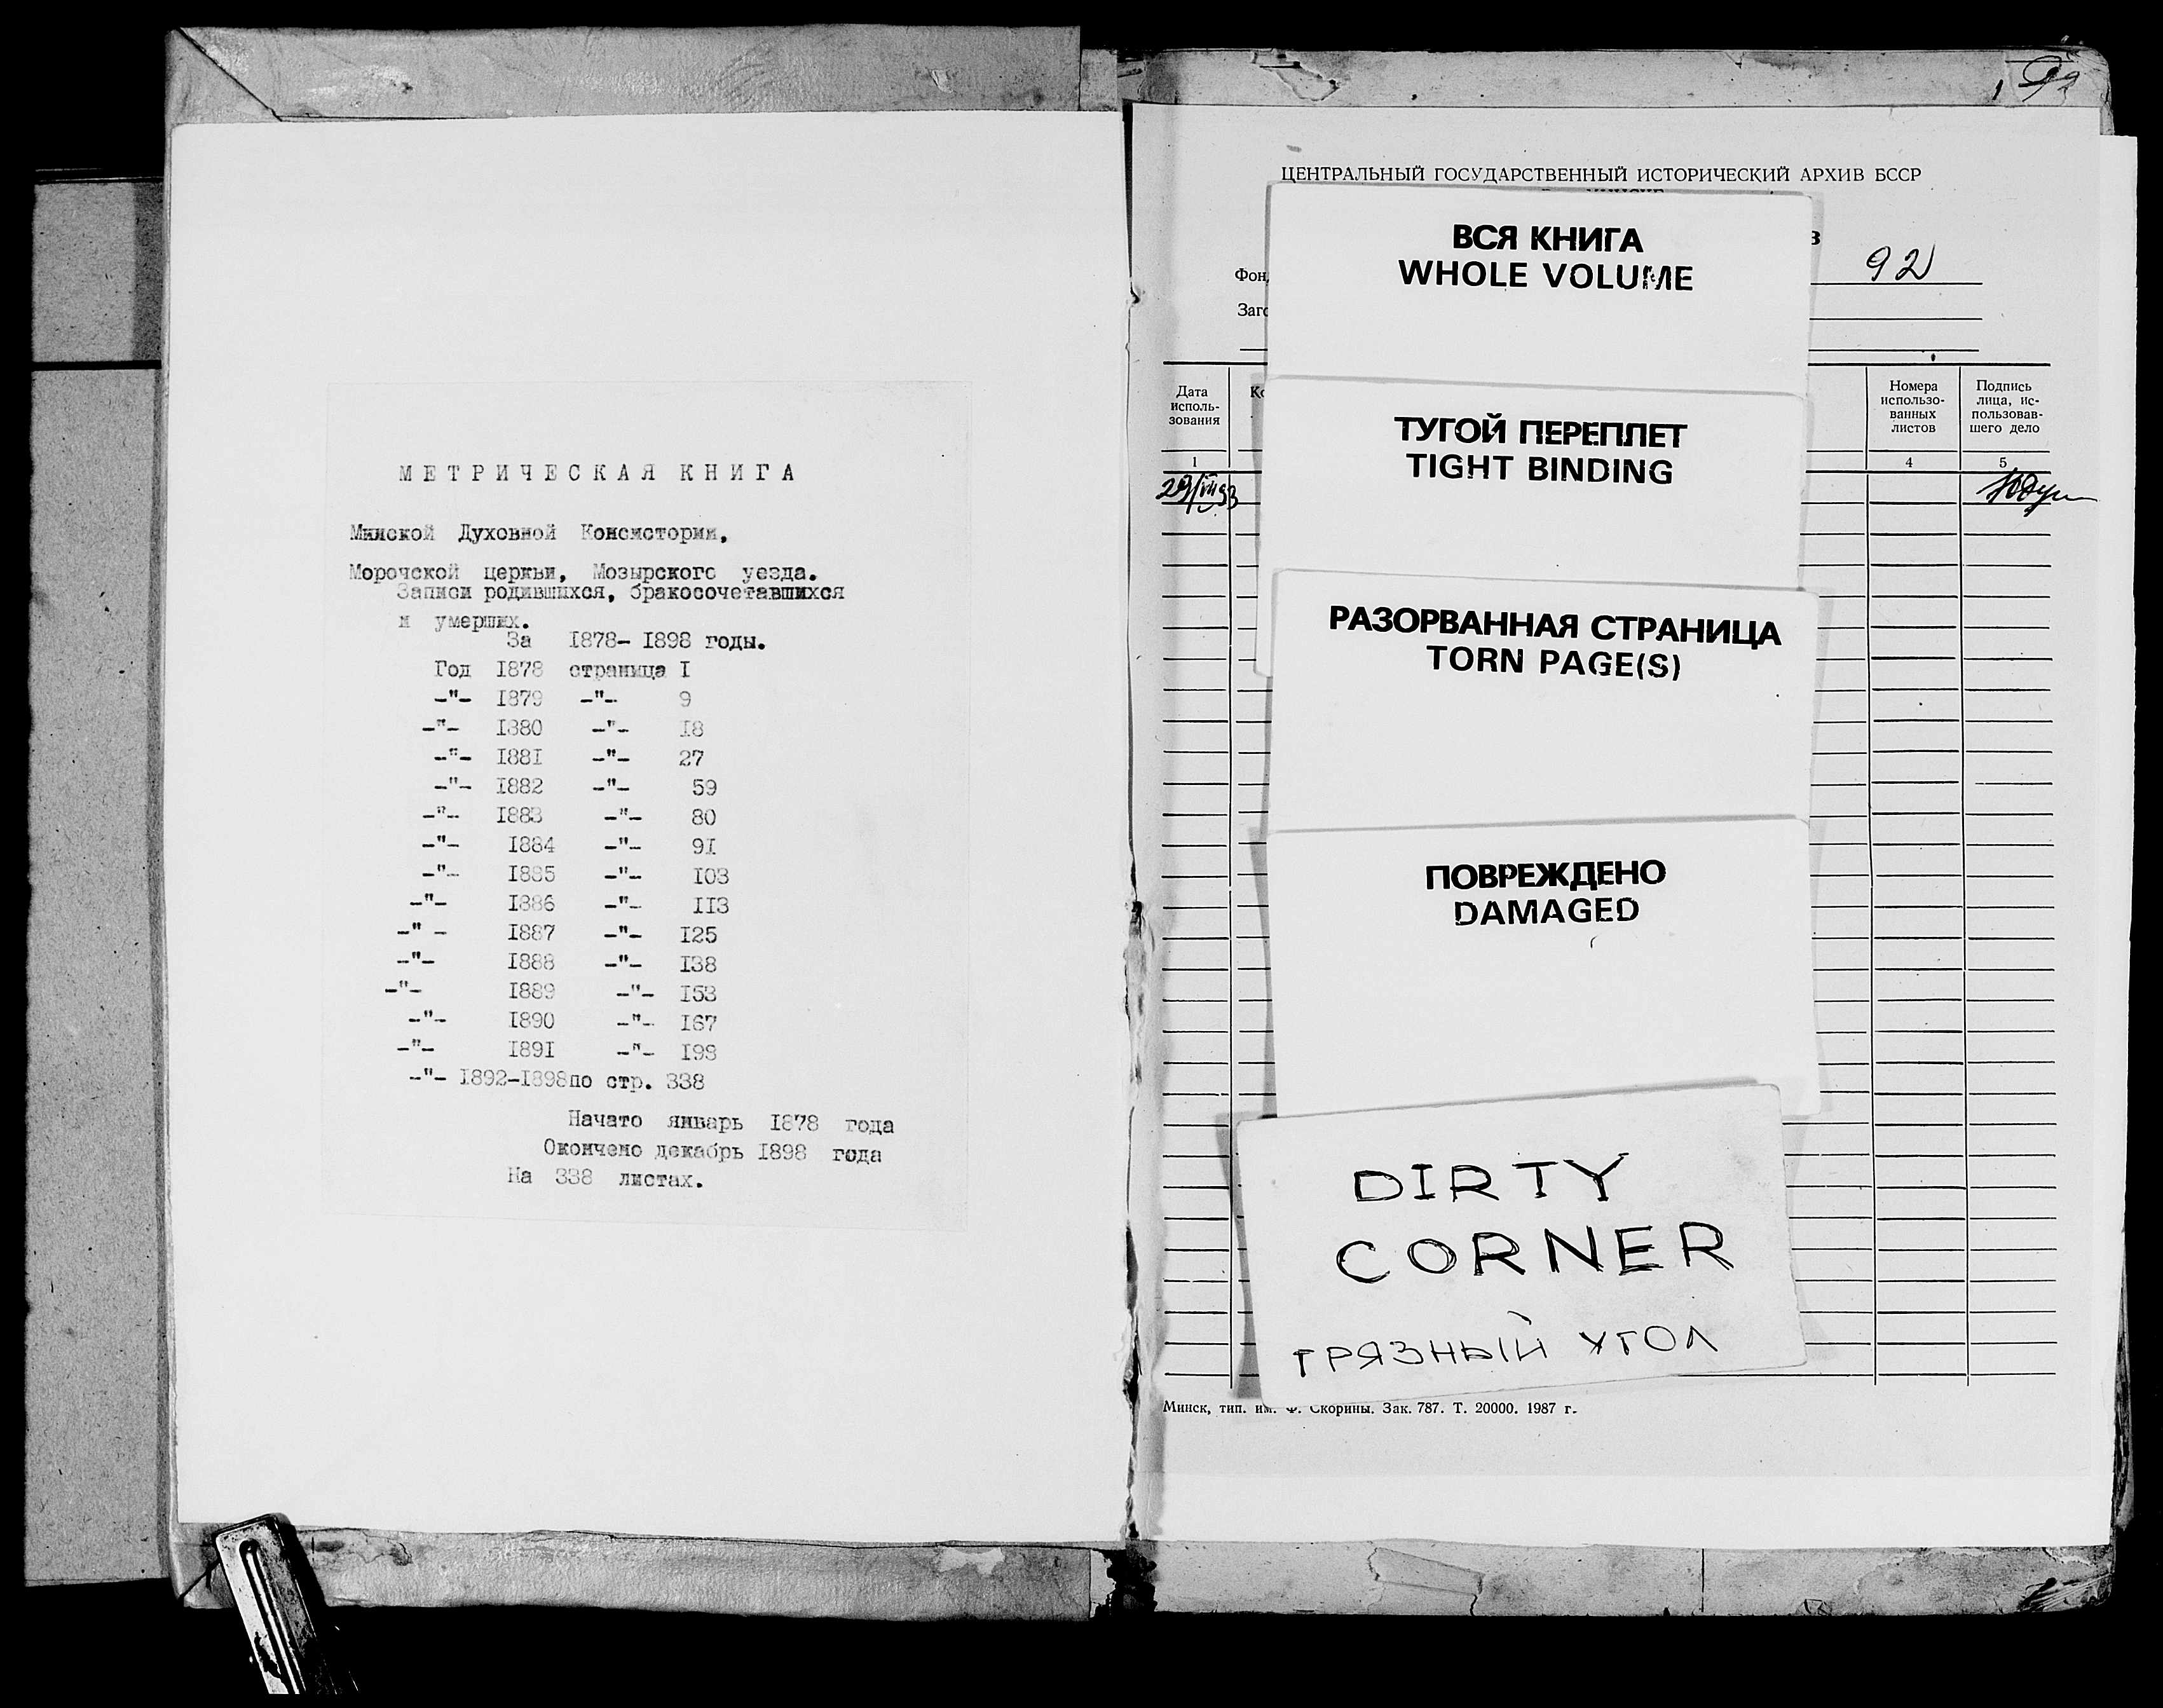 МЕТРИЧЕСКАЯ КНИГА
Минской Духовной Консистории,
Морочской церкви, Мозырского уезда.
Записи родившихся, бракосочетавшихся
и умерших.
За 1878- 1898 годы.
Год 1878 страница I
-"- 1879 -"- 9
-"- 1880 -"- 18
-"- 1881 -"- 27
-"- 1882 -"- 59
-"- 1883 -"- 80
-"- 1884 -"- 91
-"- 1885 -"- 103
-"- 1886 -"- 113
-" - 1887 -"- 125
-"- 1888 -"- 138
-"- 1889 -"- 153
-"- 1890 -"- 167
-"- 1891 -"- 198
-"- 1892-1898по стр. 338
Начато январь 1878 года
Окончено декабрь 1898 года
На 338 листах.
ЦЕНТРАЛЬНЫЙ ГОСУДАРСТВЕННЫЙ ИСТОРИЧЕСКИЙ АРХИВ БССР
92
ВСЯ КНИГА
WHOLE VOLUME
ТУГОЙ ПЕРЕПЛЕТ
TIGHT BINDING
РАЗОРВАННАЯ СТРАНИЦА
TORN PAGE(S)
ПОВРЕЖДЕНО
DAMAGED
DIRTY
CORNER
ГРЯЗНЫЙ УГОЛ
Дата
исполь-
зования
Номера
использо-
ванных
листов
Подпись
лица, ис-
пользовав-
шего дело
1
4
5
29/VII 93
Минск, тип. им. Ф. Скорины. Зак. 787. Т. 20000. 1987 г.